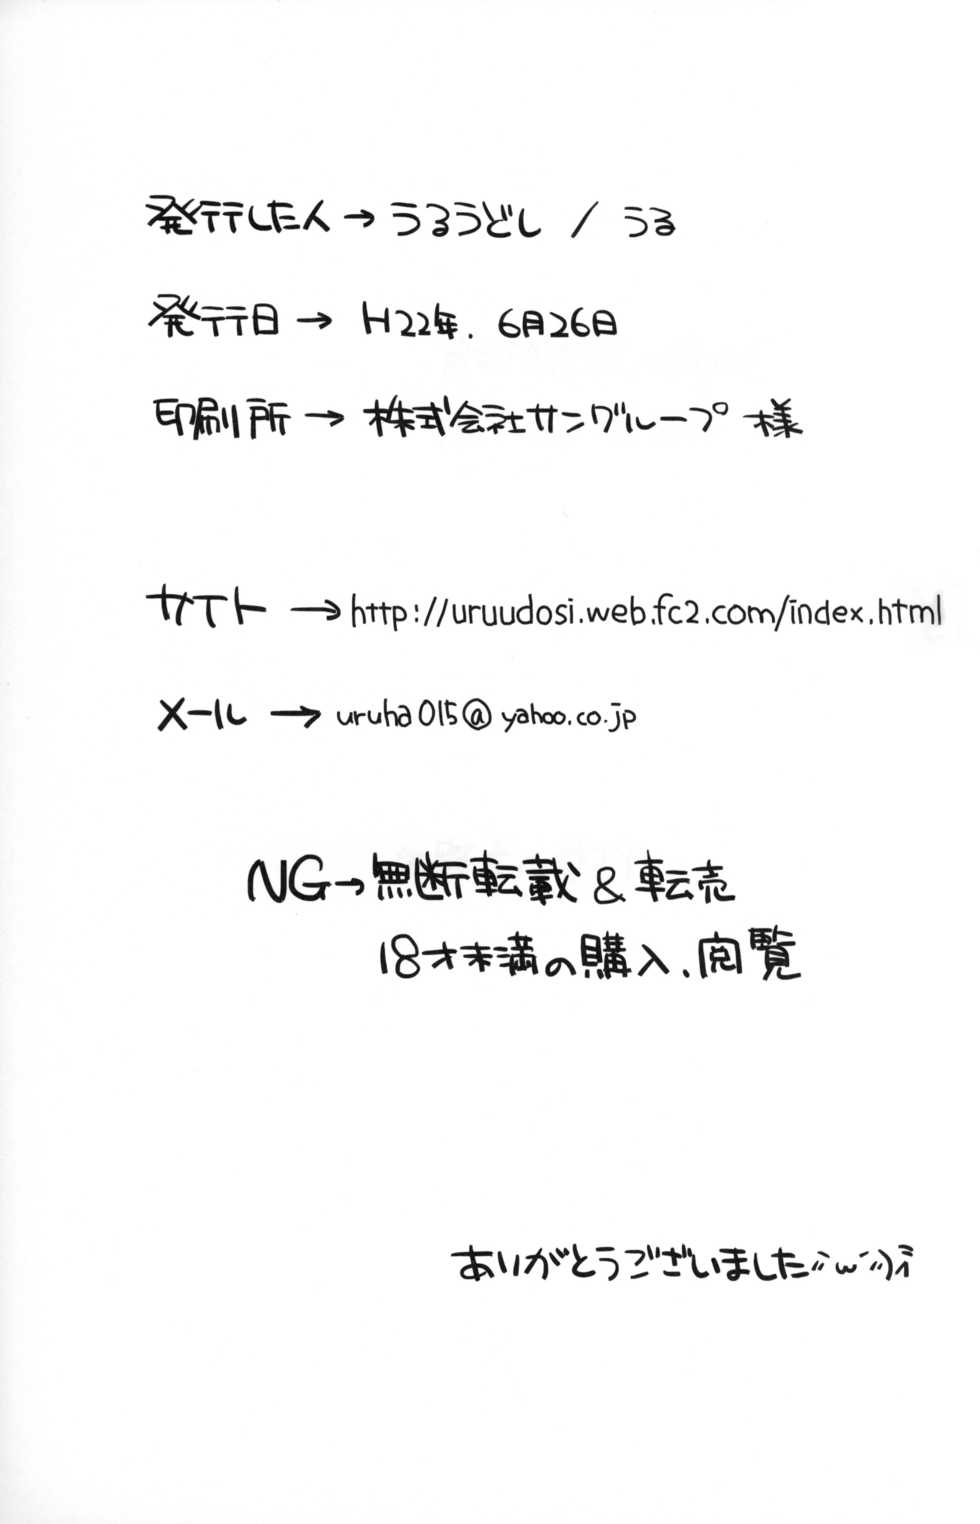 発行した人→うるうどし / うる
発行日→ H22年. 6月26日
印刷所→株式会社サングループ様
サイト→http://uruudosi.web.fc2.com/index.html
メール→uruha015@yahoo.co.jp
NG→無断転載&転売
18才未満の購入、閲覧
ありがとうございました